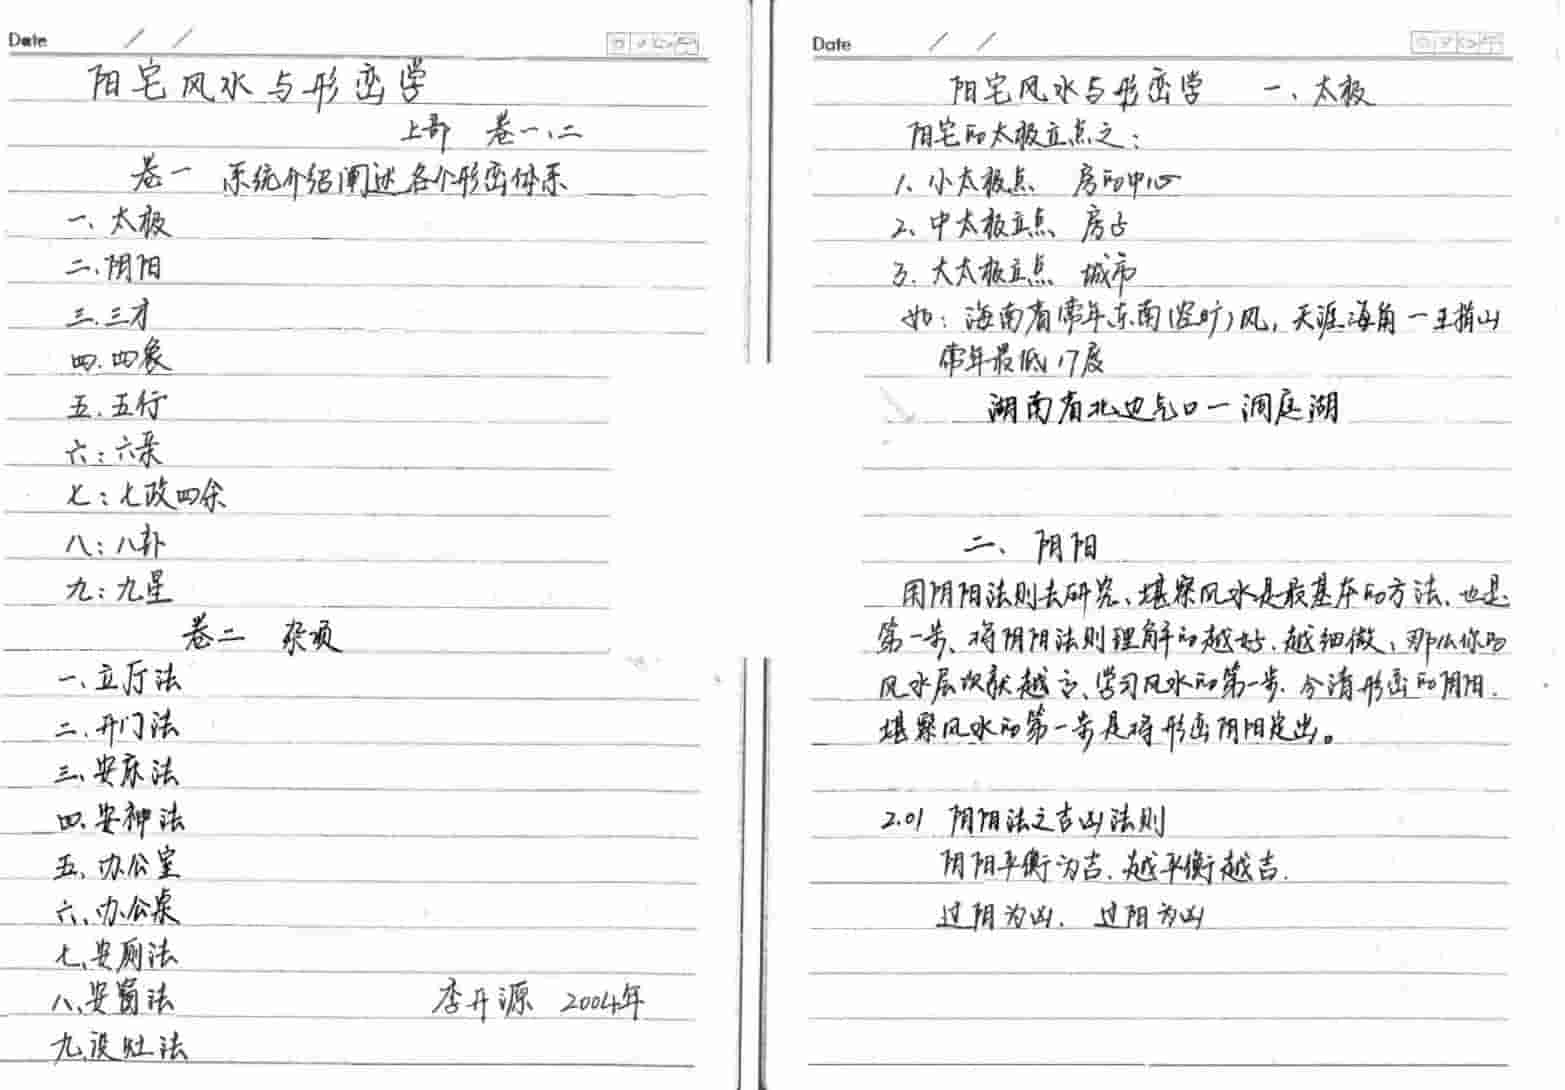 Date / /
阳宅风水与形峦学
上部 卷一、二
卷一 系统介绍阐述各个形峦体系
一、太极
二、阴阳
三、三才
四、四象
五、五行
六：六亲
七：七政四余
八：八卦
九：九星
卷二 杂项
一、立厅法
二、开门法
三、安床法
四、安神法
五、办公室
六、办公桌
七、安厕法
八、安窗法
九、设灶法
李开源 2004年
Date / /
阳宅风水与形峦学 一、太极
阳宅的太极立点之：
1、小太极点 房的中心
2、中太极立点 房占
3、大太极立点 城市
如：海南省常年东南(空旷)风，天涯海角一王指山
常年最低17度
湖南省北边气口一洞庭湖
二、阴阳
用阴阳法则去研究、堪察风水是最基本的方法、也是
第一步、将阴阳法则理解的越好、越细微，那么你的
风水层次就越高、学习风水的第一步、分清形峦的阴阳.
堪察风水的第一步是将形峦阴阳定出。
2.01 阴阳法之吉凶法则
阴阳平衡为吉.越平衡越吉.
过阴为凶. 过阳为凶